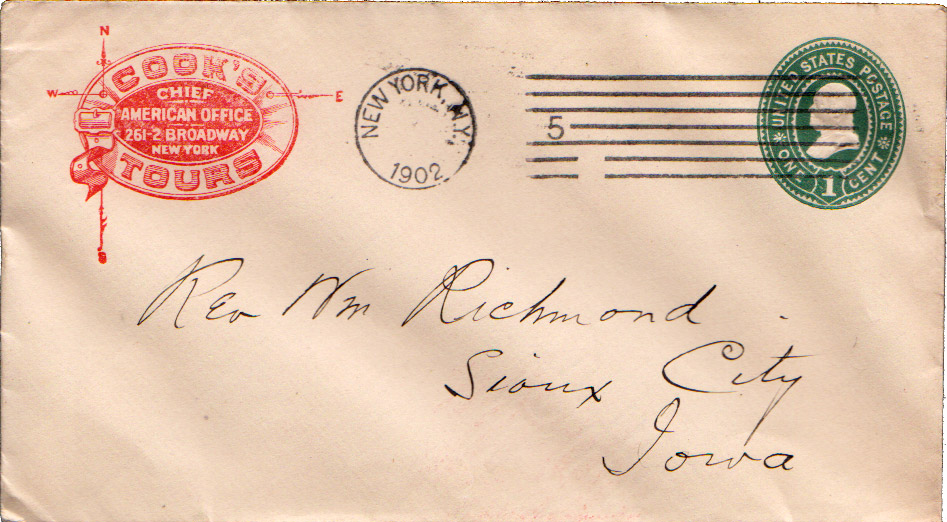 N
COOK'S
W E
CHIEF
AMERICAN OFFICE
261-2 BROADWAY
NEW YORK
TOURS
S
NEW YORK, N.Y.
1902
5
UNITED STATES POSTAGE
ONE 1 CENT
Rev Wm Richmond
Sioux City
Iowa